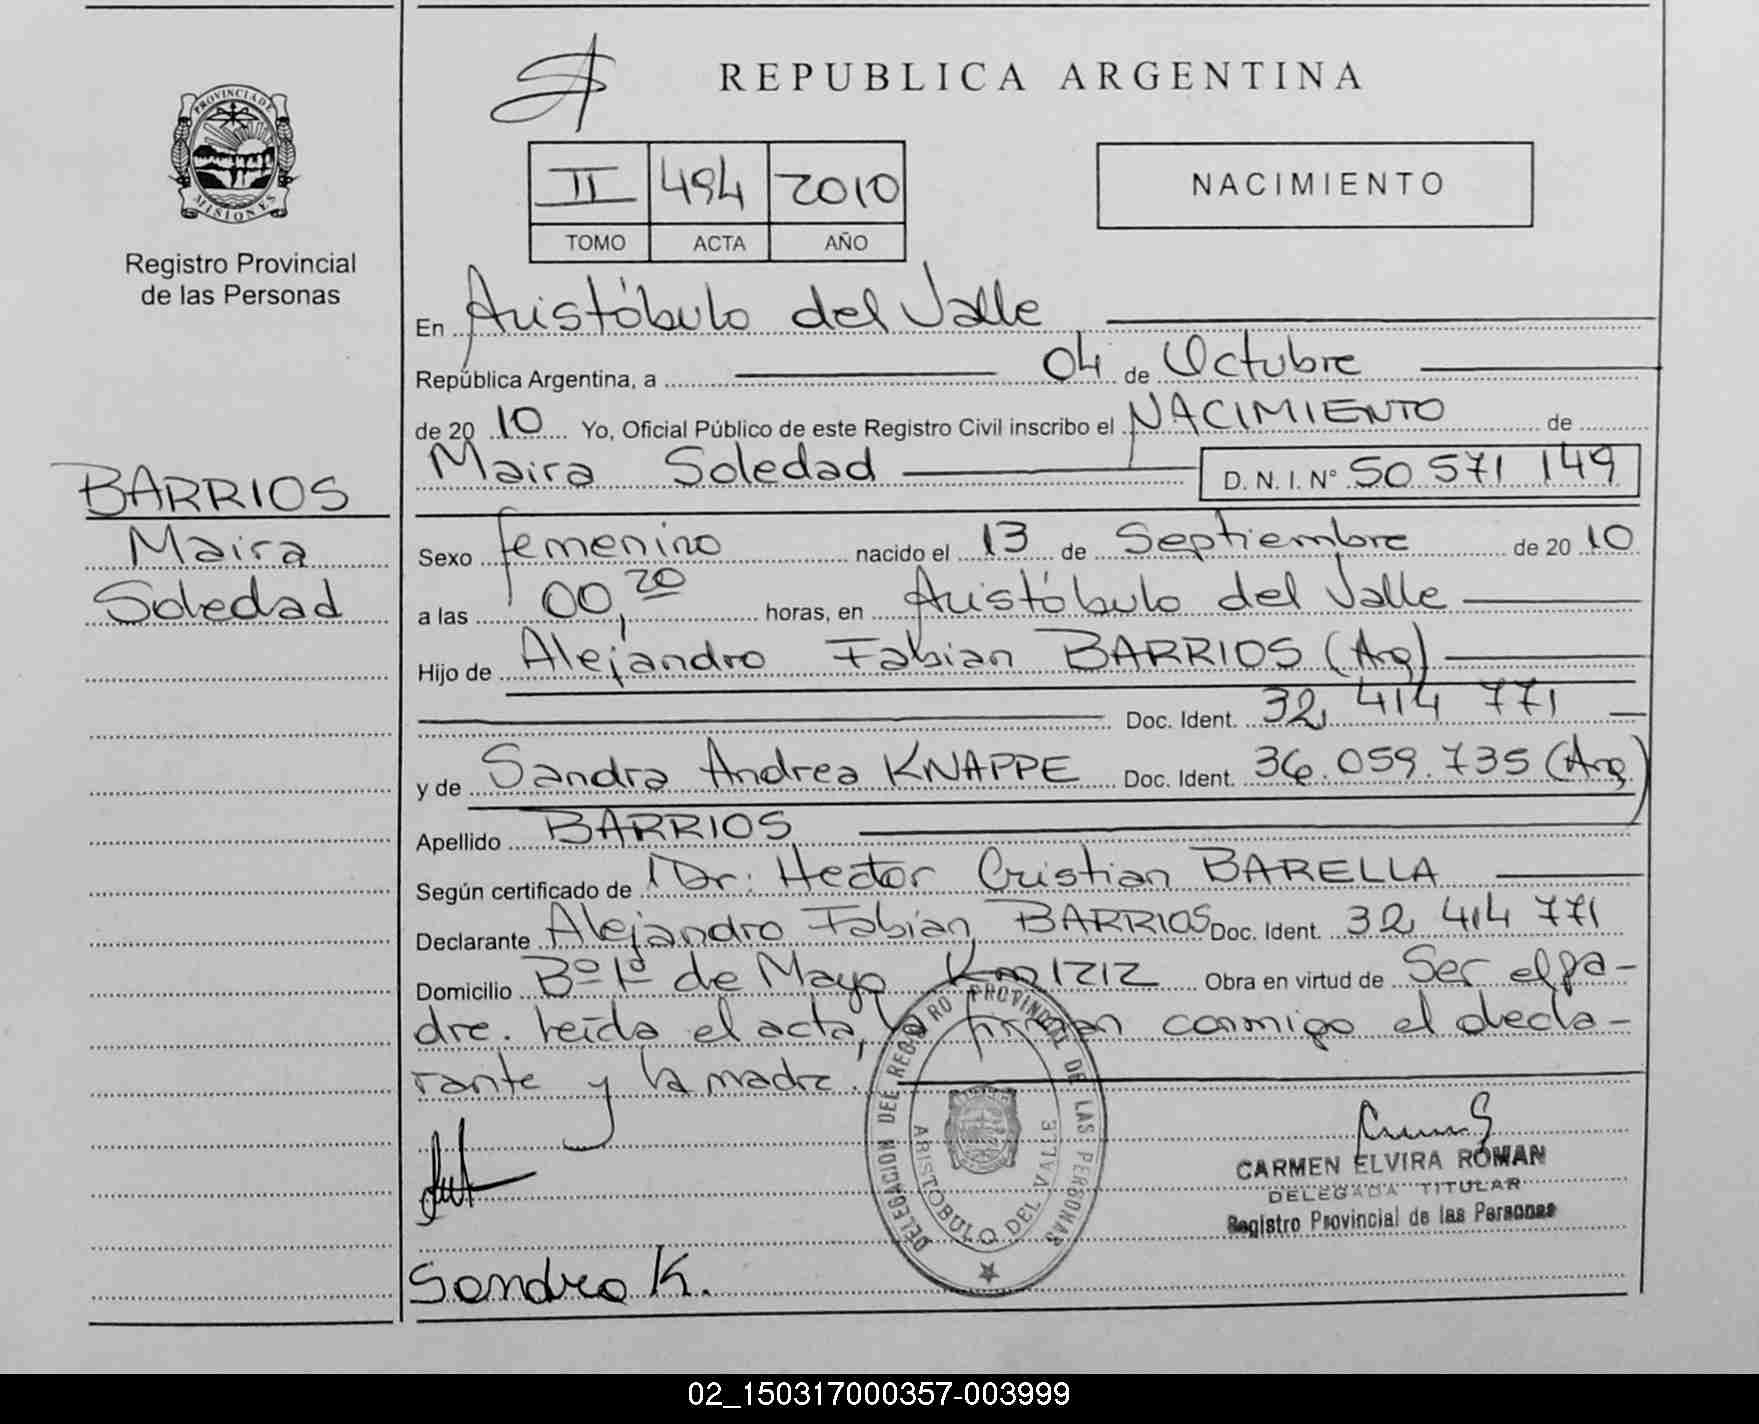 REPUBLICA ARGENTINA
PROVINCIA DE
MISIONES
Registro Provincial
de las Personas
II 494 2010
TOMO ACTA AÑO
NACIMIENTO
En Aristóbulo del Valle
República Argentina, a 04 de Octubre
de 20 10 Yo, Oficial Público de este Registro Civil inscribo el NACIMIENTO de
Maira Soledad D. N. I. Nº 50 571 149
BARRIOS
Maira
Soledad
Sexo femenino nacido el 13 de Septiembre de 20 10
a las 00,20 horas, en Aristóbulo del Valle
Hijo de Alejandro Fabian BARRIOS (Arg)
Doc. Ident. 32, 414 771
y de Sandra Andrea KNAPPE Doc. Ident. 36.059.735 (Arg)
Apellido BARRIOS
Según certificado de Dr. Hector Cristian BARELLA
Declarante Alejandro Fabian BARRIOS Doc. Ident. 32, 414 771
Domicilio Bº 1º de Mayo Km 1212 Obra en virtud de Ser el pa-
dre. Leída el acta, la firman conmigo el decla-
rante y la madre.
DELEGACION DEL REGISTRO PROVINCIAL DE LAS PERSONAS
ARISTOBULO DEL VALLE
CARMEN ELVIRA ROMAN
DELEGADA TITULAR
Registro Provincial de las Personas
Sandra K.
02_150317000357-003999